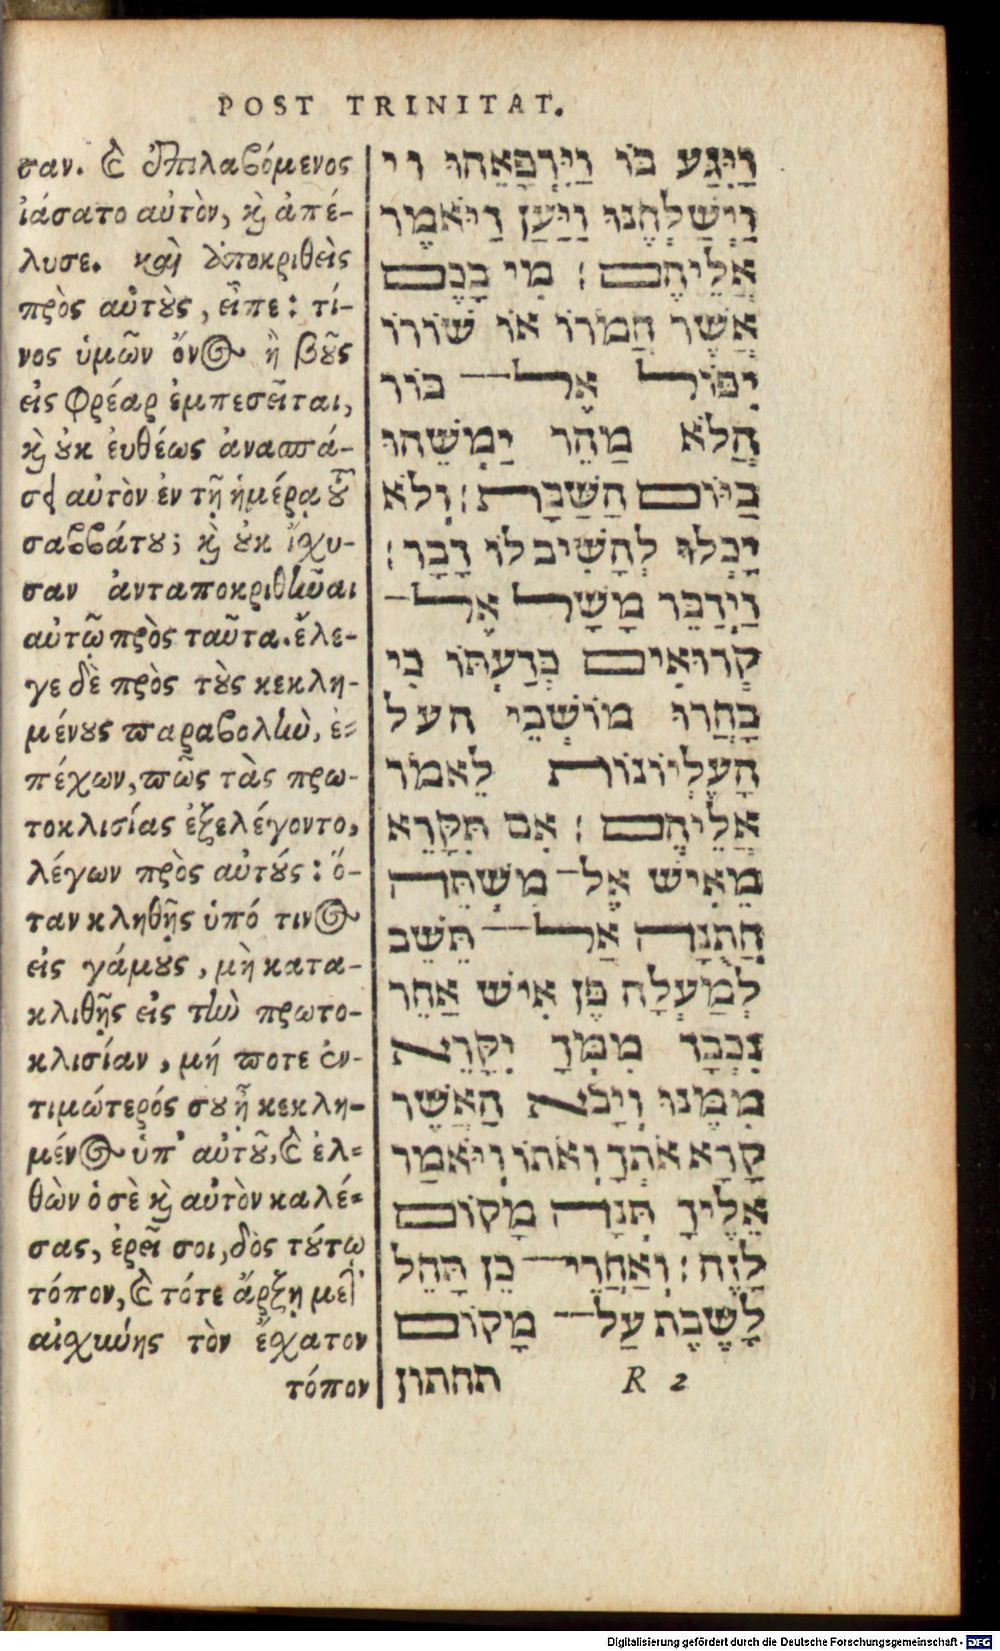 POST TRINITAT.
σαν. καὶ ἐπιλαβόμενος
ἰάσατο αὐτὸν, καὶ ἀπέ-
λυσε. καὶ ἀποκριθεὶς
πρὸς αὐτοὺς, εἶπε: τί-
νος ὑμῶν ὄνος ἢ βοῦς
εἰς φρέαρ ἐμπεσεῖται,
καὶ οὐκ ἐυθέως ἀνασπά-
σει αὐτὸν ἐν τῇ ἡμέρᾳ τοῦ
σαββάτου; καὶ οὐκ ἴσχυ-
σαν ἀνταποκριθῆναι
αὐτῷ πρὸς ταῦτα. ἔλε-
γε δὲ πρὸς τοὺς κεκλη-
μένους παραβολὴν, ἐ-
πέχων, πῶς τὰς πρω-
τοκλισίας ἐξελέγοντο,
λέγων πρὸς αὐτούς: ὅ-
ταν κληθῇς ὑπό τινος
εἰς γάμους, μὴ κατα-
κλιθῇς εἰς τὴν πρωτο-
κλισίαν, μή ποτε ἐν-
τιμώτερός σου ᾖ κεκλη-
μένος ὑπ᾽ αὐτοῦ, καὶ ἐλ-
θὼν ὁ σὲ καὶ αὐτὸν καλέ-
σας, ἐρεῖ σοι, δὸς τούτῳ
τόπον, καὶ τότε ἄρξῃ μετ᾽
αἰσχύνης τὸν ἔσχατον
τόπον
וַיִּגַּע בֹּו וַיִּרְפָּאֵהוּ וי
וַיְשַׁלְּחֶנּוּ וַיַּעַן וַיֹּאמֶר
אֲלֵיהֶם : מִי בָכֶם
אֲשֶׁר חֲמֹרוֹ אֹו שֹׁורוֹ
יִפֹּול אֶל־ בֹּור
הֲלֹא מַהֵר יִמְשֵׁהוּ
בַּיֹּום הַשַּׁבָּת : וְלֹא
יָכְלוּ לְהָשִׁיב לֹו דָבָר :
וַיְדַבֵּר מָשָׁל אֶל־
קְרוּאִים בְּדַעְתֹּו כִּי
בָּחֲרוּ מֹושְׁבֵי העל
הָעֶלְיֹונֹות לֵאמֹר
אֲלֵיהֶם : אִם תִּקָּרֵא
מֵאִישׁ אֶל־ מִשְׁתֵּה
חֲתֻנָּה אַל־ תֵּשֵׁב
לְמַעְלָה פֶּן אִישׁ אַחֵר
נִכְבָּד מִמְּךָ יִקָּרֵא
מִמֶּנּוּ וְיָבֹא הַאֲשֶׁר
קָרָא אֹתְךָ וְאֹתֹו וְיֹּאמַר
אֵלֶיךָ תְּנָה מָקֹום
לָזֶה : וְאַחֲרֵי־ כֵן תָּהֵל
לָשֶׁבֶת עַל־ מָקֹום
תחתון
R 2
Digitalisierung gefördert durch die Deutsche Forschungsgemeinschaft - DFG